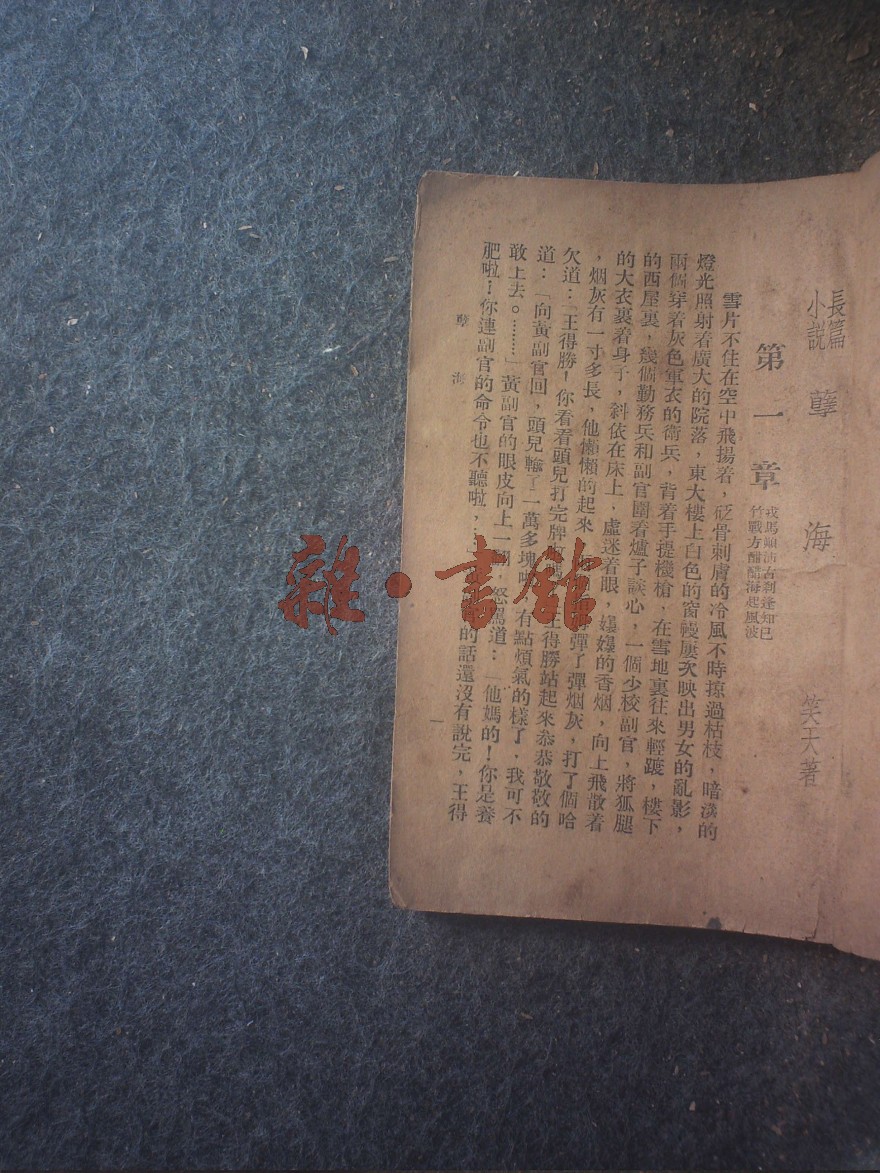 長篇
小說
孽海
笑天著
第一章
戎馬頻沛古刹逢知已
竹戰方酣醋海起風波
雪片不住在空中飛揚着，砭骨刺膚的冷風不時掠過枯枝，暗淡的
燈光照射着廣大的院落，東大樓上白色的窗幔屢次映出男女的亂影，
兩個穿着灰色軍衣的衛兵，背着手提機槍，在雪地裏往來輕踱，樓下
的西屋裏，幾個勤務兵和副官圍着爐子談心，一個少校副官，將狐腿
的大衣裹着身子，斜依在床上，虛迷着眼，嬝嬝的香烟，向上飛散着
，烟灰有一寸多長，他懶懶的起來 彈了彈烟灰，打了個哈
欠道：「王得勝！你看看頭兒打完牌 王得勝站起來恭恭敬敬的
道：「向黃副官回，頭兒輸了一萬多塊 有點煩氣的樣了，我可不
敢上去。………」黃副官的眼皮向上一 怒罵道：「他媽的！你是養
肥啦！你連副官的命令也不聽啦， 的話還沒有說完，王得
孽海
一
雜·書館